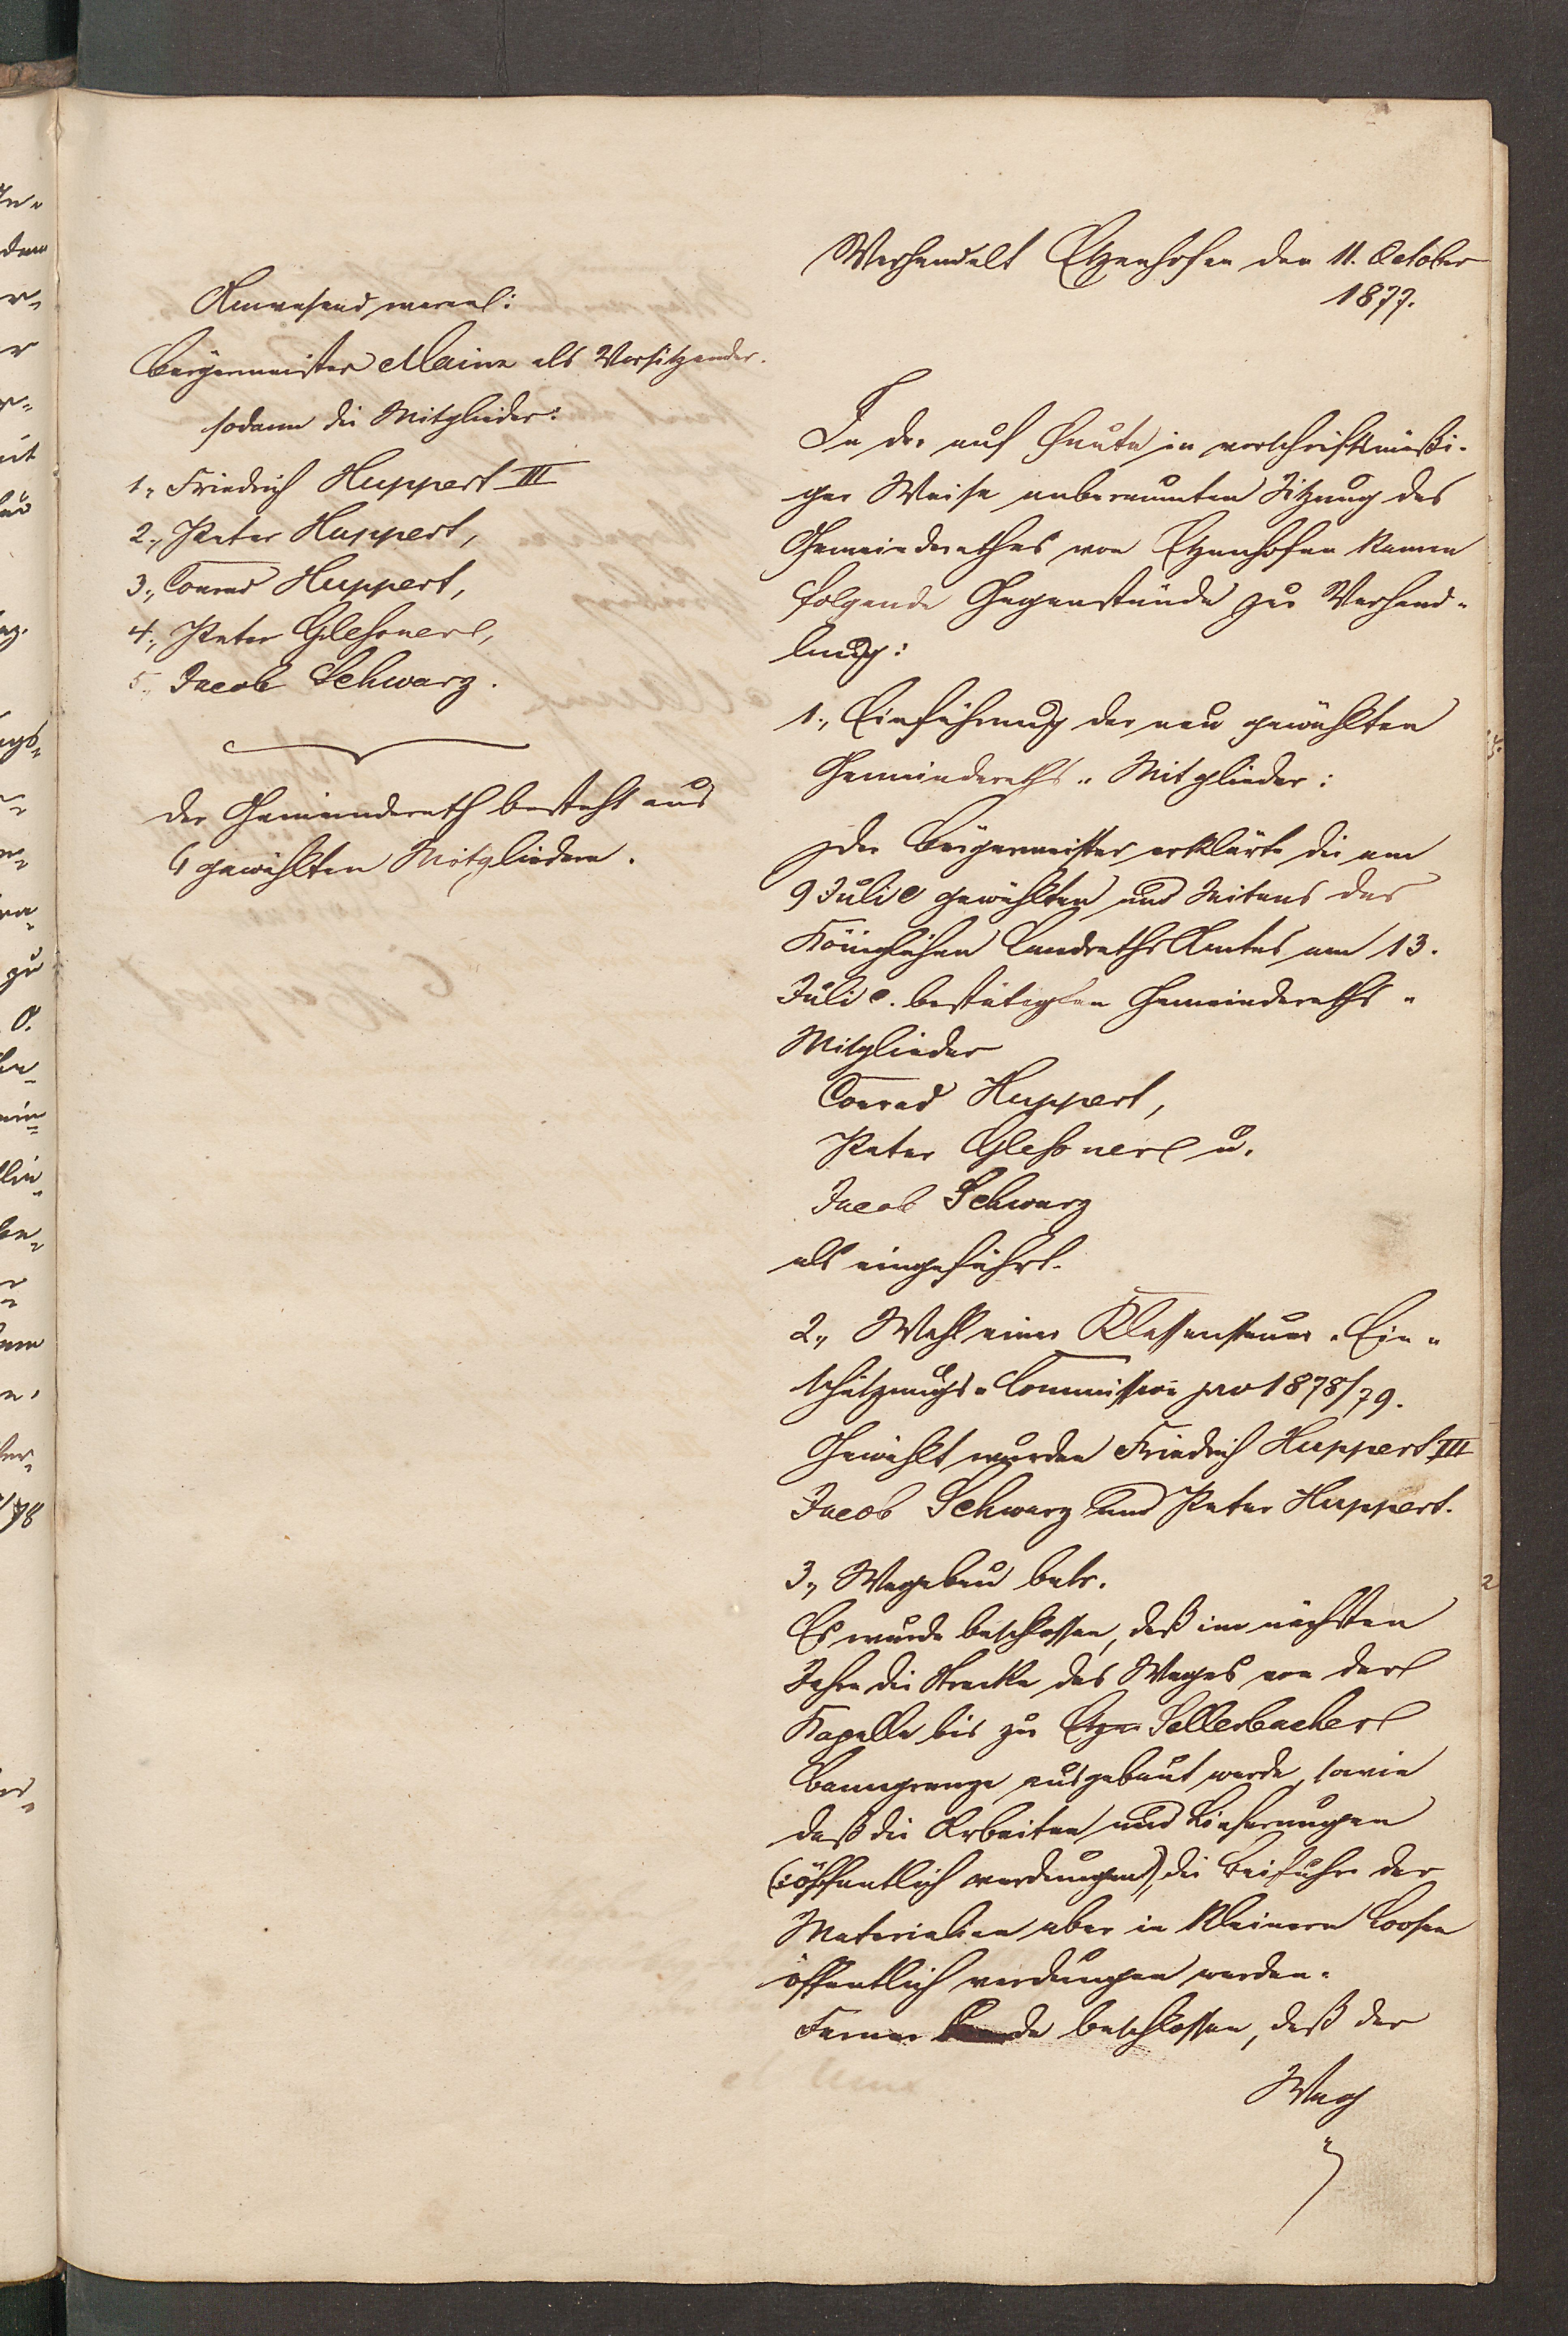 Anwesend waren:
Bürgermeister Mainz als Vorsitzender.
sodann die Mitglieder:
1., Friedrich Huppert III
2., Peter Huppert,
3., Conrad Huppert,
4., Peter Gleßner,
5., Jacob Schwarz.
Der Gemeinderath besteht aus
6 gewählten Mitgliedern.
Verhandelt Etzenhofen den 11. October
1877.
In der auf heute in vorschriftsmäßi-
ger Weise anberaumten Sitzung des
Gemeinderathes von Etzenhofen kamen
folgende Gegenstände zur Verhand-
lung:
1., Einführung der neu gewählten
Gemeinderaths-Mitglieder:
Der Bürgermeister erklärte die am
9 Juli c gewählten und Seitens des
Königlichen Landraths Amtes am 13.
Juli c. bestätigten Gemeinderaths-
Mitglieder
Conrad Huppert,
Peter Gleßner u.
Jacob Schwarz
als eingeführt.
2., Wahl einer Klassensteuer-Ein-
schätzungs-Commission pro 1878/79.
Gewählt wurden Friedrich Huppert III
Jacob Schwarz und Peter Huppert.
3., Wegebau betr.
Es wurde beschlossen, daß im nächsten
Jahre die Strecke des Weges von der
Kapelle bis zur Etzen Sellerbacher
Banngrenze ausgebaut werde, sowie
daß die Arbeiten und Lieferungen
(öffentlich verdungen), die Beifuhr der
Materialien aber in kleinern Loosen
öffentlich verdungen werden.
Ferner beschlossen, daß der
Weg